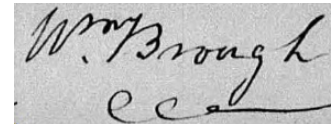 Wm Brough